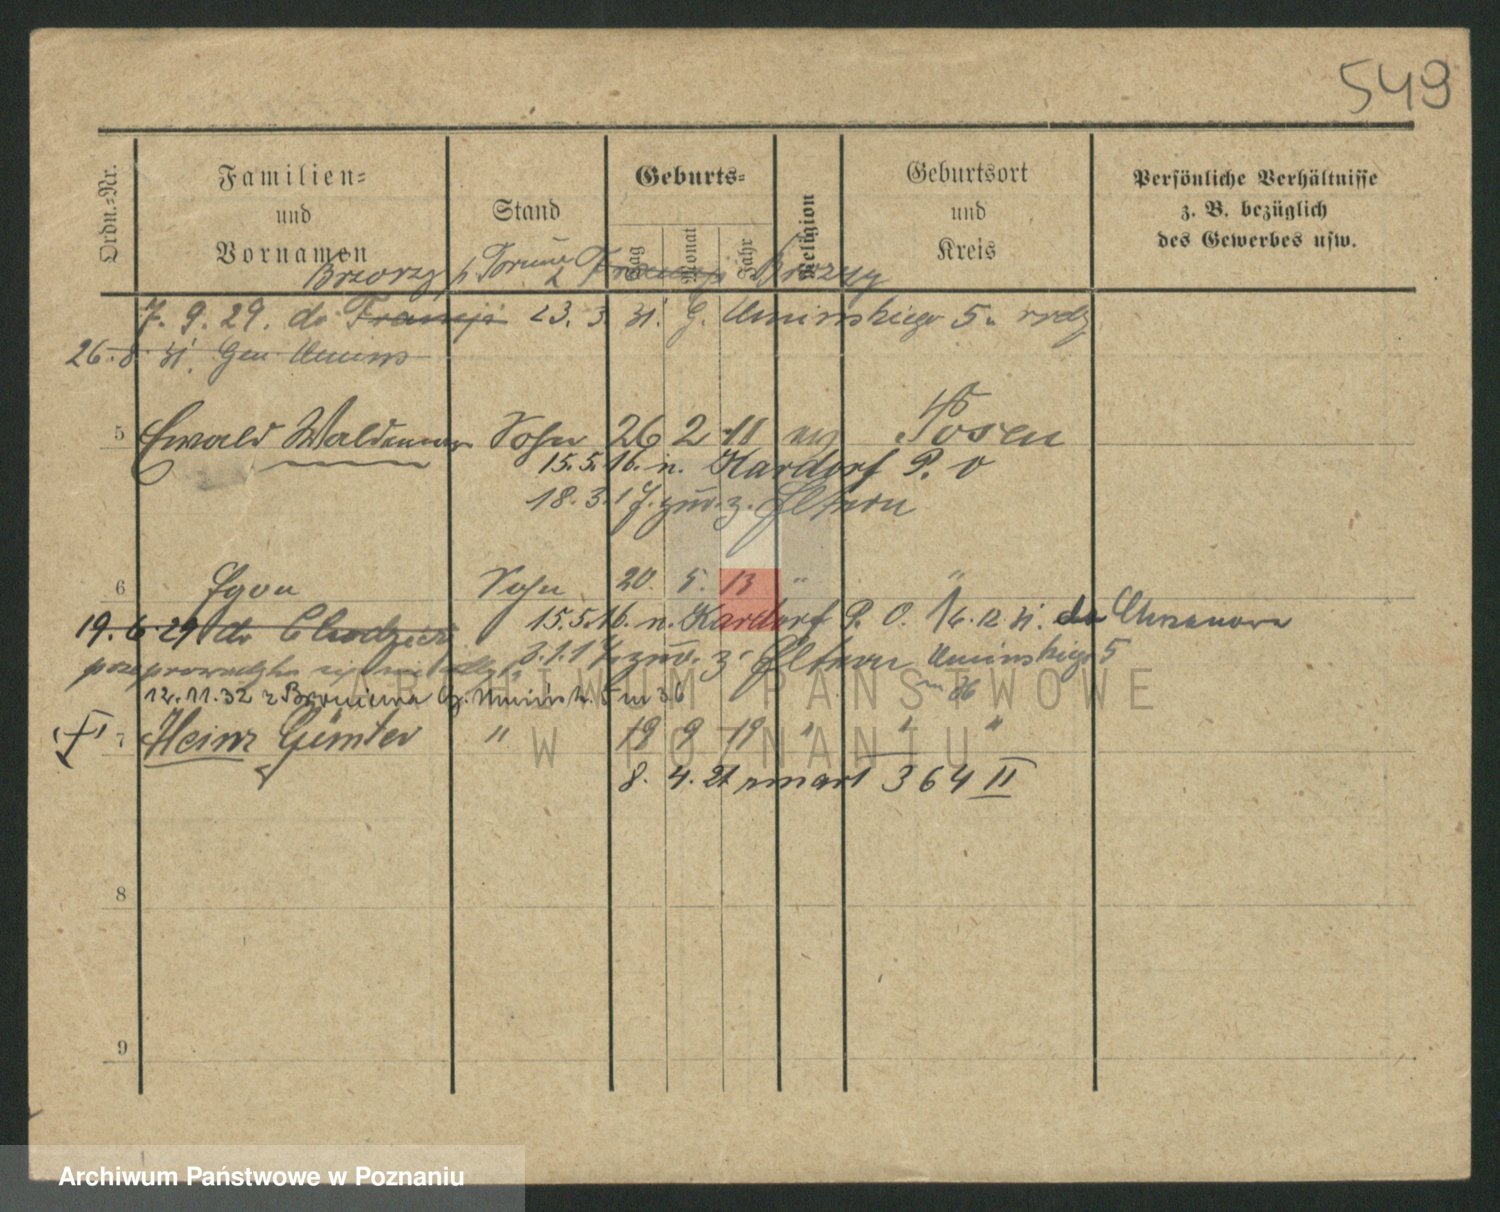 549
Ordn.-Nr.
Familien-
und
Vornamen
Stand
Geburts-
Tag
Monat
Jahr
Religion
Geburtsort
und
Kreis
Persönliche Verhältnisse
z. B. bezüglich
des Gewerbes usw.
7. 9. 29. do 23. 3. 31. G. Umińskiego 5.
26. 8. 31. Gen Umińs
5 Ewald Waldemar Sohn 26 2 11 ev Posen
15.5.16. n. Kardorf P. O.
18. 3. 17. zur. z. Eltern
6 Egon Sohn 20. 5. 13 " "
19. 6. 29 do 15.5.16. n. Kardorf P. O. 16. 12. 31. do
zur. z. Eltern Umińskiego 5
12.11.32 z G. Umińsk. 5 m 36
7 Heinz Günter " 19 9 19 " " "
8. 4. 21 364 II
8
9
ARCHIWUM PAŃSTWOWE
W POZNANIU
Archiwum Państwowe w Poznaniu